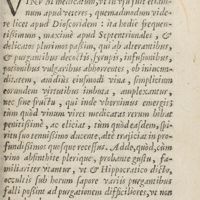 VINI ni medicatum, vt in vsu fuit etiam-
num apud veteres, quemadmodum vide-
re licet apud Dioscoridem: ita hodie frequen-
tissimum, maximè apud Septentrionales, &
delicatos plurimos passim, qui ab alterantibus,
& purgantibus decoctis, syrupis, infusionibus,
potionibus vulgaribus abhorrentes, ob iniucun-
ditatem, auidiùs eiusmodi vina, simplicium
eorundem virtutibus imbuta, amplexantur,
nec sine fructu, qui inde vberrimus emergit:
tum quòd vinum vires medicatas rerum bibat
penitissimè, ac eliciat, tum quòd easdem, spi-
ritu suo tenuissimo ducente, altè traijciat in pro-
fundissimos quosque recessus. Adde, quòd, cùm
vino absinthite plerique, probante gustu, fami-
liariter vtantur, vt & Hippocratico dicto,
occulti sub horum sapore varijs purgantibus
falli possint ad purgationem difficiliores, vt non